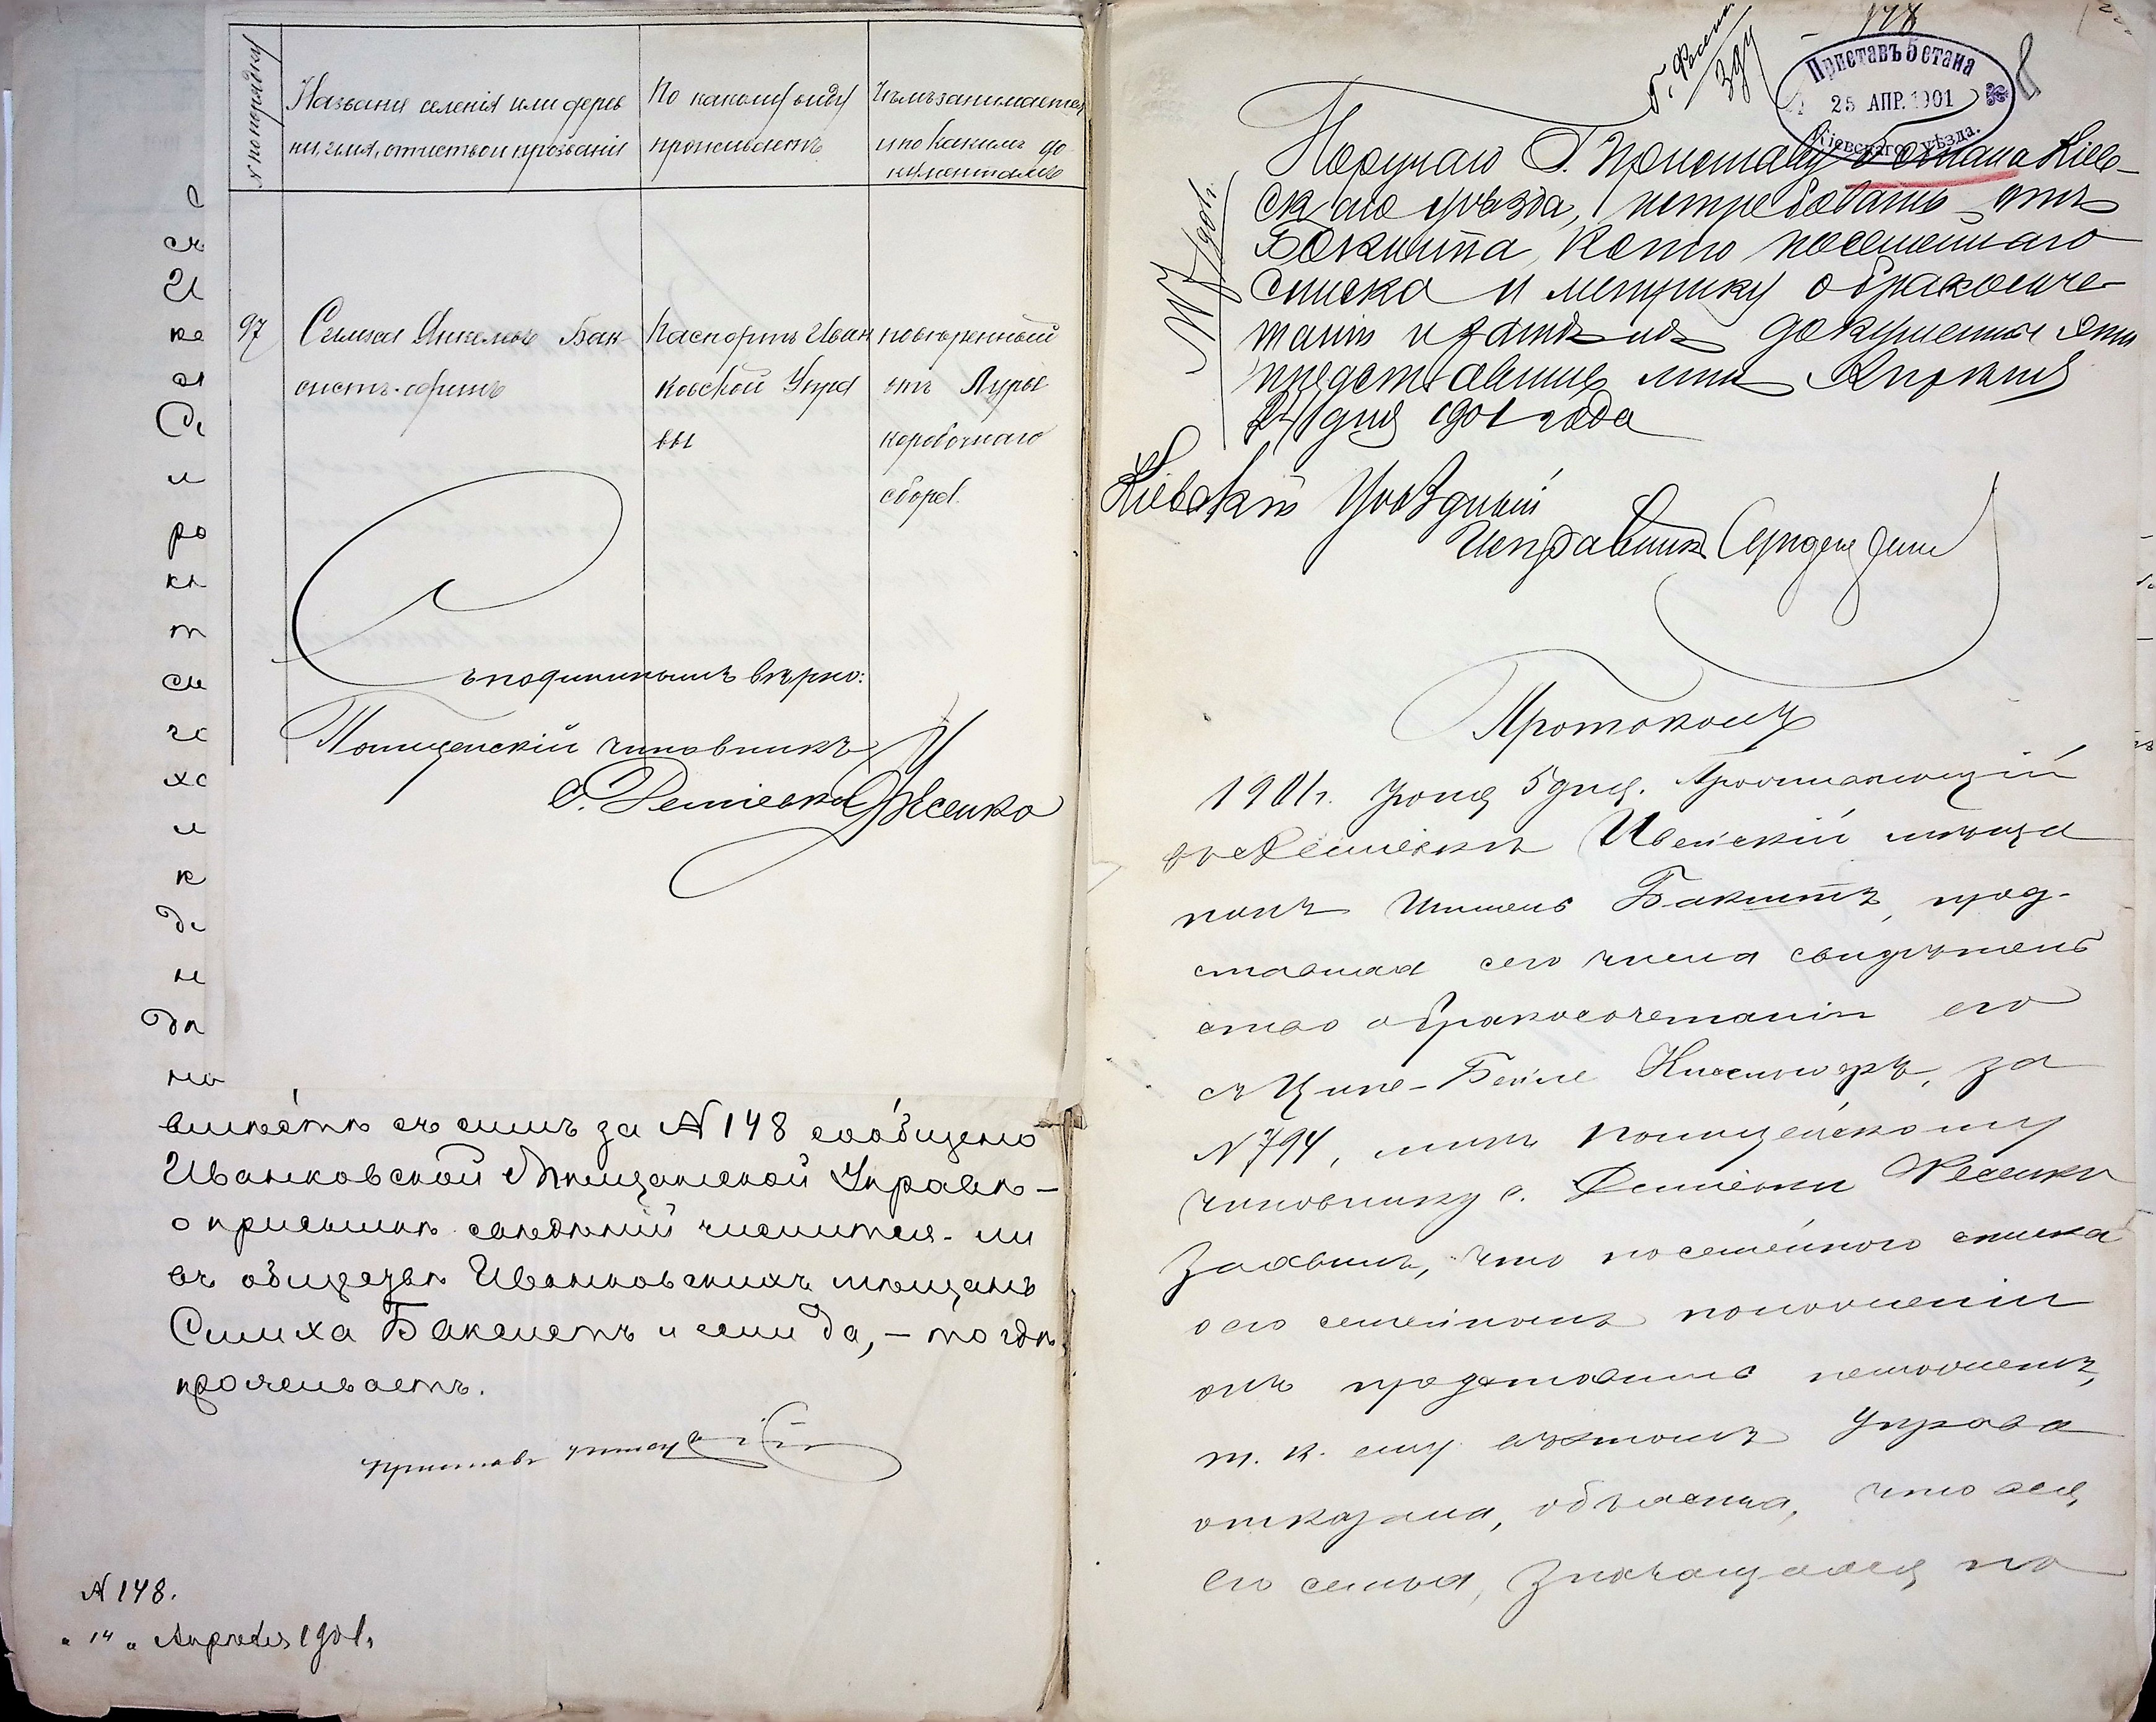 № по порядку
Названія селенія или дерев
ни, имя, отчество и прозваніе
По какому виду
проживаетъ
Чѣмъ занимается
и по какимъ до
кументамъ
97
Симха Янкелевъ Бак
Паспортъ Иван
ковской Упра
вы
повѣренный
отъ
коробочнаго
сбора.
съ подлиннымъ вѣрно:
Полицейскій чиновникъ
с. Деміевки Фесенко
с
сч
И
ко
ро
кл
т
си
чс
хс
и
к
де
не
да
но
вмѣстѣ съ симъ за № 148 сообщено
Иванковской Мѣщанской Управѣ –
о присылкѣ свѣдѣній числится-ли
въ обществѣ Иванковскихъ мѣщанъ
Симха Бакштъ и если да, – то гдѣ
проживаетъ.
Приставъ
№ 148.
„ 14 „ Апрѣля 1901 г.
148
8
Приставъ 5 стана
25 АПР. 1901
Кіевскаго уѣзда.
Поручаю Г. Приставу 5 стана Кіев-
скаго уѣзда, истребовать отъ
Бакшта, копію посемейнаго
списка и метрику о бракосоче-
таніи и затѣмъ документы эти
представить мнѣ Апрѣля
дня 1901 года
Кіевскій Уѣздный
Исправникъ
Протоколъ
1901 г. Іюня 5 дня. Проживающій
въ Деміевкѣ мѣща
нинъ Бакштъ, пред-
ставляя сего числа свидѣтель
ство о бракосочетаніи его
съ Ципе-Бейле за
№ 794, мнѣ полицейскому
чиновнику с. Деміевки Фесенко
заявилъ, что посемейнаго списка
о его семейномъ положеніи
онъ представить не можетъ,
т. к. ему въ этомъ Управа
отказала, объясняя, что вся
его семья, значащаяся по